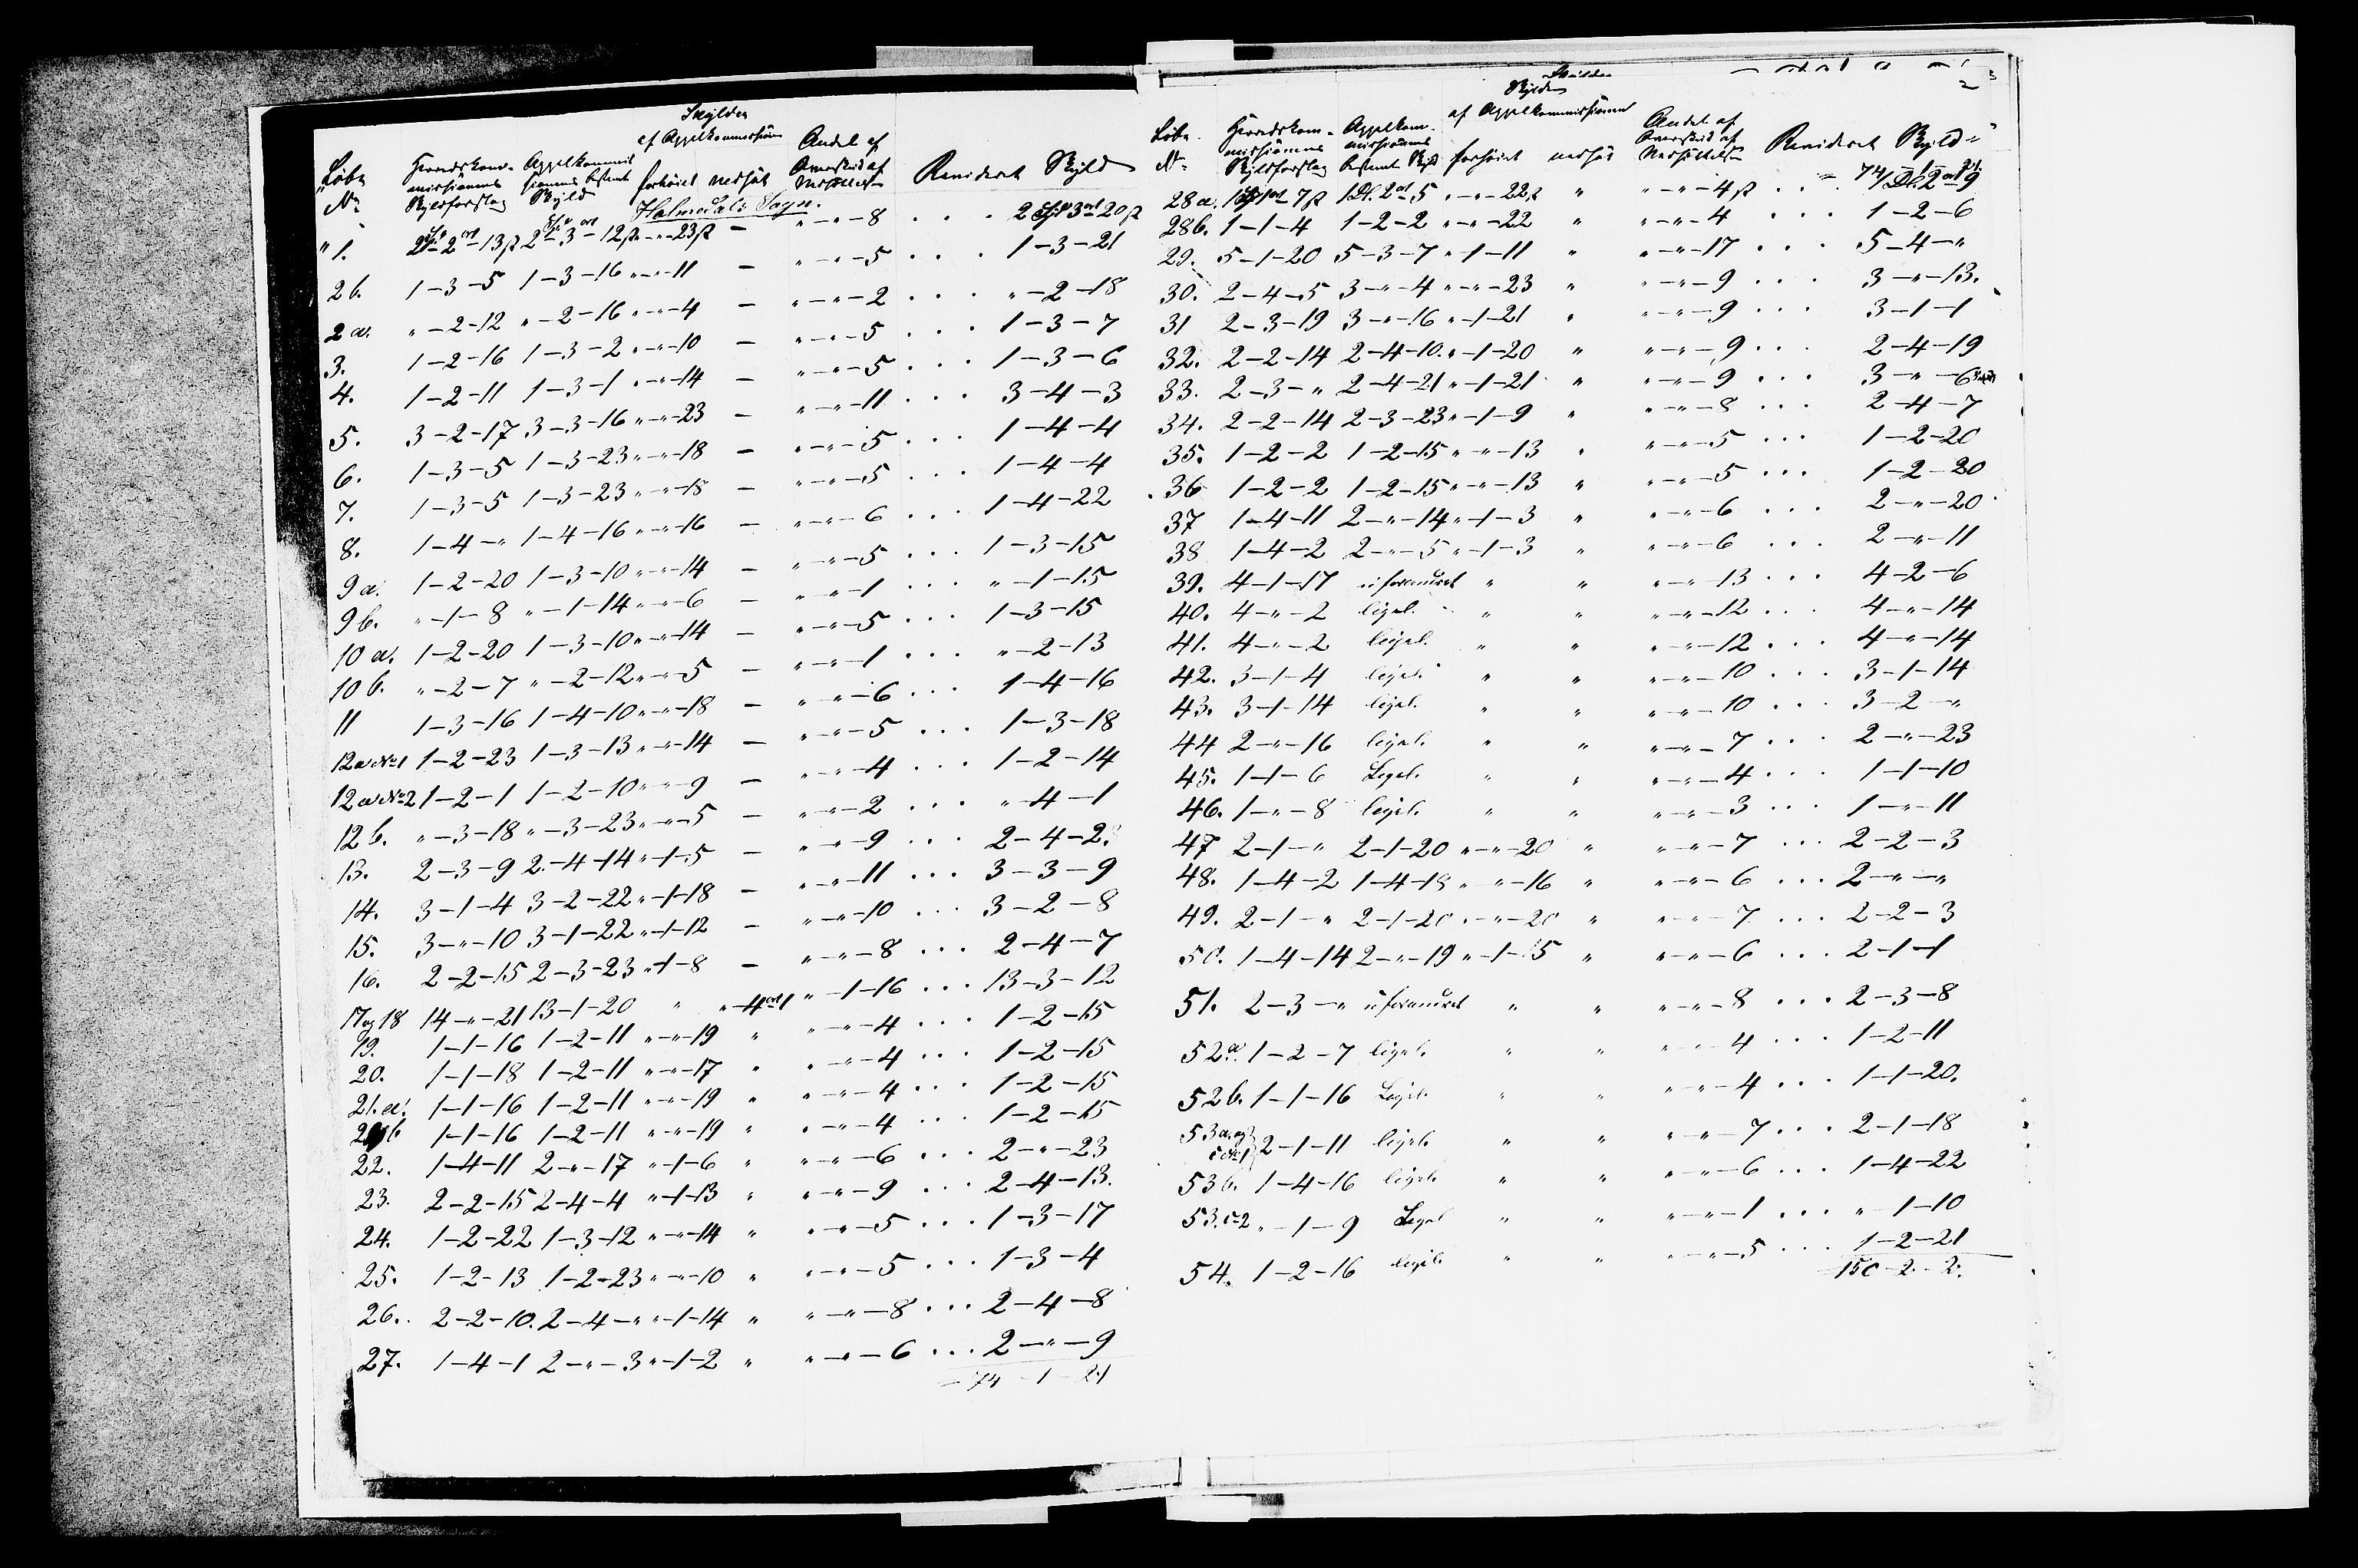 Skylden
af Appelkommissionen
Løbe No
Herredskommissionens Skyldforslag
Appelkommissionens bestemte Skyld
forhöiet
nedsat
Andel af
Revideret Skyld
Holmedals Sogn.
1. 2-2-13 2-3-12 "-"-23 - "-"-8 ... 2-3-20
2b. 1-3-5 1-3-16 "-"-11 - "-"-5 ... 1-3-21
2a. "-2-12 "-2-16 "-"-4 - "-"-2 ... "-2-18
3. 1-2-16 1-3-2 "-"-10 - "-"-5 ... 1-3-7
4. 1-2-11 1-3-1 "-"-14 - "-"-5 ... 1-3-6
5. 3-2-17 3-3-16 "-"-23 - "-"-11 ... 3-4-3
6. 1-3-5 1-3-23 "-"-18 - "-"-5 ... 1-4-4
7. 1-3-5 1-3-23 "-"-18 - "-"-5 ... 1-4-4
8. 1-4-" 1-4-16 "-"-16 - "-"-6 ... 1-4-22
9a. 1-2-20 1-3-10 "-"-14 - "-"-5 ... 1-3-15
9b. "-1-8 "-1-14 "-"-6 - "-"-1 ... "-1-15
10a. 1-2-20 1-3-10 "-"-14 - "-"-5 ... 1-3-15
10b. "-2-7 "-2-12 "-"-5 - "-"-1 ... "-2-13
11 1-3-16 1-4-10 "-"-18 - "-"-6 ... 1-4-16
12a No 1 1-2-23 1-3-13 "-"-14 - "-"-5 ... 1-3-18
12a No 2 1-2-1 1-2-10 "-"-9 - "-"-4 ... 1-2-14
12b. "-3-18 "-3-23 "-"-5 - "-"-2 ... "-4-1
13. 2-3-9 2-4-14 "-1-5 - "-"-9 ... 2-4-23
14. 3-1-4 3-2-22 "-1-18 - "-"-11 ... 3-3-9
15. 3-"-10 3-1-22 "-1-12 - "-"-10 ... 3-2-8
16. 2-2-15 2-3-23 "-1-8 - "-"-8 ... 2-4-7
17 og 18 14-"-21 13-1-20 " "-4-1 "-1-16 ... 13-3-12
19. 1-1-16 1-2-11 "-"-19 " "-"-4 ... 1-2-15
20. 1-1-18 1-2-11 "-"-17 " "-"-4 ... 1-2-15
21.a. 1-1-16 1-2-11 "-"-19 " "-"-4 ... 1-2-15
21b 1-1-16 1-2-11 "-"-19 " "-"-4 ... 1-2-15
22. 1-4-11 2-"-17 "-1-6 " "-"-6 ... 2-"-23
23. 2-2-15 2-4-4 "-1-13 " "-"-9 ... 2-4-13.
24. 1-2-22 1-3-12 "-"-14 " "-"-5 ... 1-3-17
25. 1-2-13 1-2-23 "-"-10 " "-"-5 ... 1-3-4
26. 2-2-10. 2-4-" "-1-14 " "-"-8 ... 2-4-8
27. 1-4-1 2-"-3 "-1-2 " "-"-6 ... 2-"-9
74-1-21
Skylden
af Appelkommissionen
Løbe No
Herredskommissionens Skyldforslag
Appelkommissionens bestemte Skyld
forhöiet
nedsat
Andel af
Revideret Skyld
74-1-21
28a. 1-1-7 1-2-5 "-"-22 " "-"-4 ... 1-2-9
28b. 1-1-4 1-2-2 "-"-22 " "-"-4 ... 1-2-6
29. 5-1-20 5-3-7 "-1-11 " "-"-17 ... 5-4-"
30. 2-4-5 3-"-4 "-"-23 " "-"-9 ... 3-"-13.
31 2-3-19 3-"-16 "-1-21 " "-"-9 ... 3-1-1
32. 2-2-14 2-4-10. "-1-20 " "-"-9 ... 2-4-19
33. 2-3-" 2-4-21 "-1-21 " "-"-9 ... 3-"-6
34. 2-2-14 2-3-23 "-1-9 " "-"-8 ... 2-4-7
35. 1-2-2 1-2-15 "-"-13 " "-"-5 ... 1-2-20
36 1-2-2 1-2-15 "-"-13 " "-"-5 ... 1-2-20
37 1-4-11 2-"-14 "-1-3 " "-"-6 ... 2-"-20
38 1-4-2 2-"-5 "-1-3 " "-"-6 ... 2-"-11
39. 4-1-17 uforandret " " "-"-13 ... 4-2-6
40. 4-"-2 ligel. " " "-"-12 ... 4-"-14
41. 4-"-2 ligel. " " "-"-12 ... 4-"-14
42. 3-1-4 ligel. " " "-"-10 ... 3-1-14
43. 3-1-14 ligel. " " "-"-10 ... 3-2-"
44 2-"-16 ligel. " " "-"-7 ... 2-"-23
45. 1-1-6 Ligel. " " "-"-4 ... 1-1-10
46. 1-"-8 ligel. " " "-"-3 ... 1-"-11
47 2-1-" 2-1-20 "-"-20 " "-"-7 ... 2-2-3
48. 1-4-2 1-4-18 "-"-16 " "-"-6 ... 2-"-"
49. 2-1-" 2-1-20 "-"-20 " "-"-7 ... 2-2-3
50. 1-4-14 2-"-19 "-1-5 " "-"-6 ... 2-1-1
51. 2-3-" uforandret " " "-"-8 ... 2-3-8
52a. 1-2-7 ligel. " " "-"-4 ... 1-2-11
52b. 1-1-16 Ligel. " " "-"-4 ... 1-1-20.
53a. og c No 1 2-1-11 ligel. " " "-"-7 ... 2-1-18
53b. 1-4-16 ligel. " " "-"-6 ... 1-4-22
53.c-2 "-1-9 Ligel " " "-"-1 ... "-1-10
54. 1-2-16 ligel. " " "-"-5 ... 1-2-21
150-2-2.